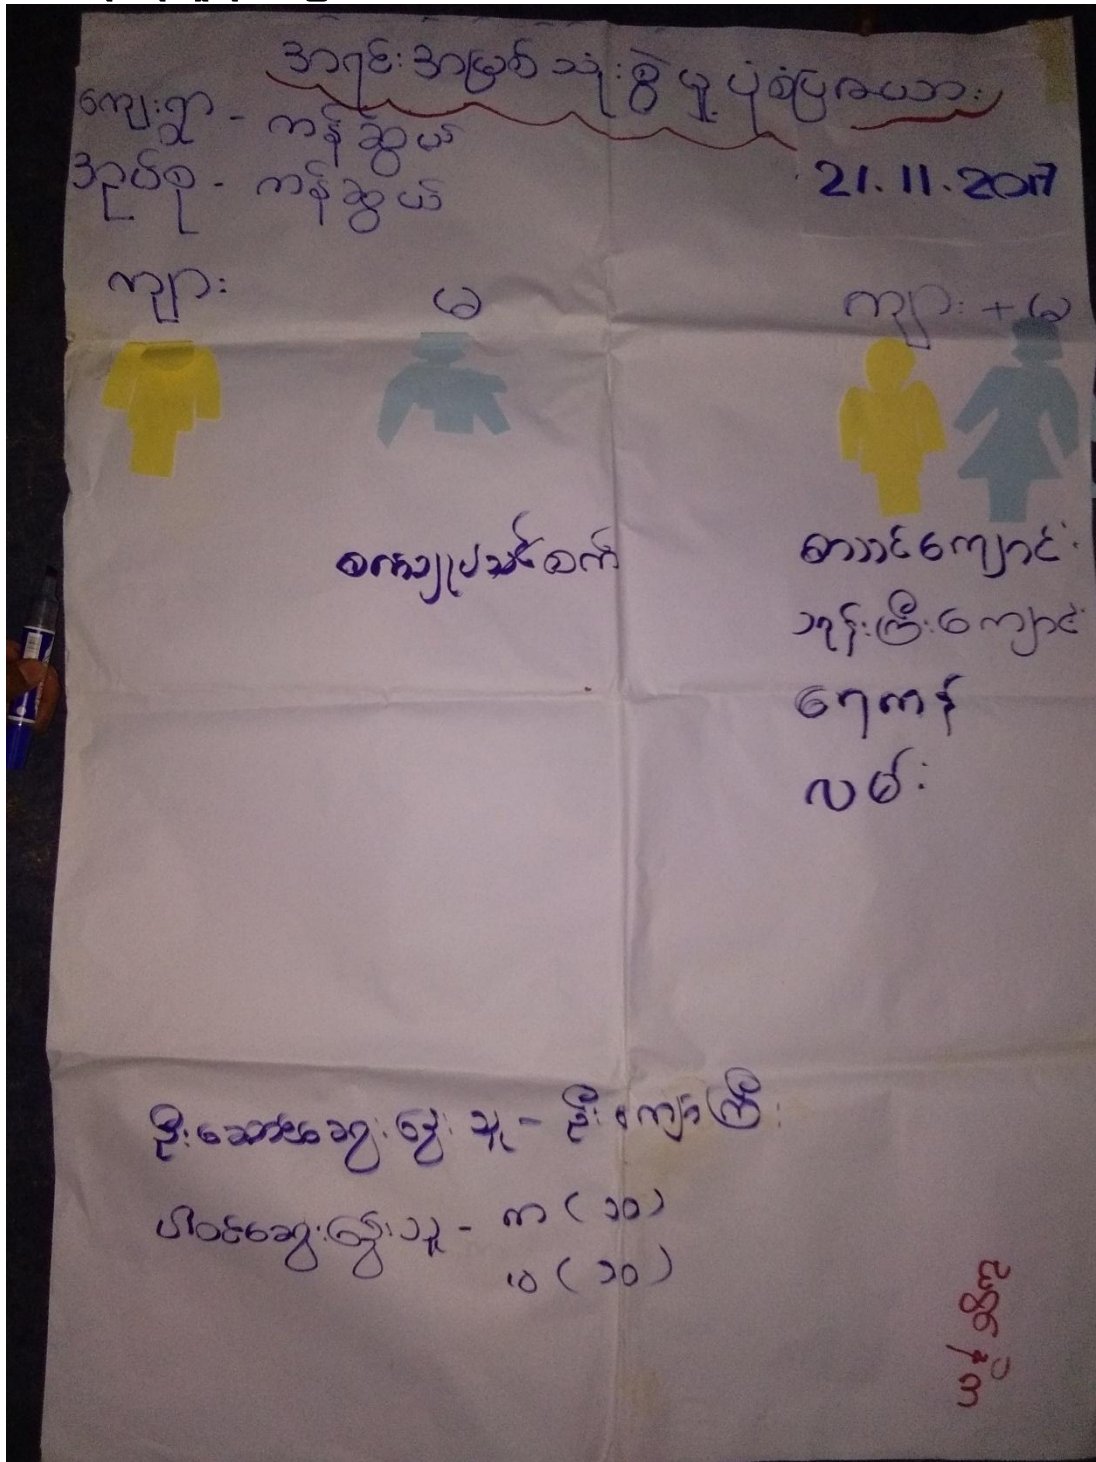 အရင်းအမြစ် သုံးစွဲမှု ပုံစံပြဇယား
ကျေးရွာ - ကန်ဆွယ်
အုပ်စု - ကန်ဆွယ်
21.11.2017
ကျား
မ
ကျား + မ
စက်ချုပ်သင်စက်
စာသင်ကျောင်း
ဘုန်းကြီးကျောင်း
ရေကန်
လမ်း
ဦးဆောင်ဆွေးနွေးသူ - ဦးကျော်ကြီး
ပါဝင်ဆွေးနွေးသူ - ကျာ (၁၀)
မ (၁၀)